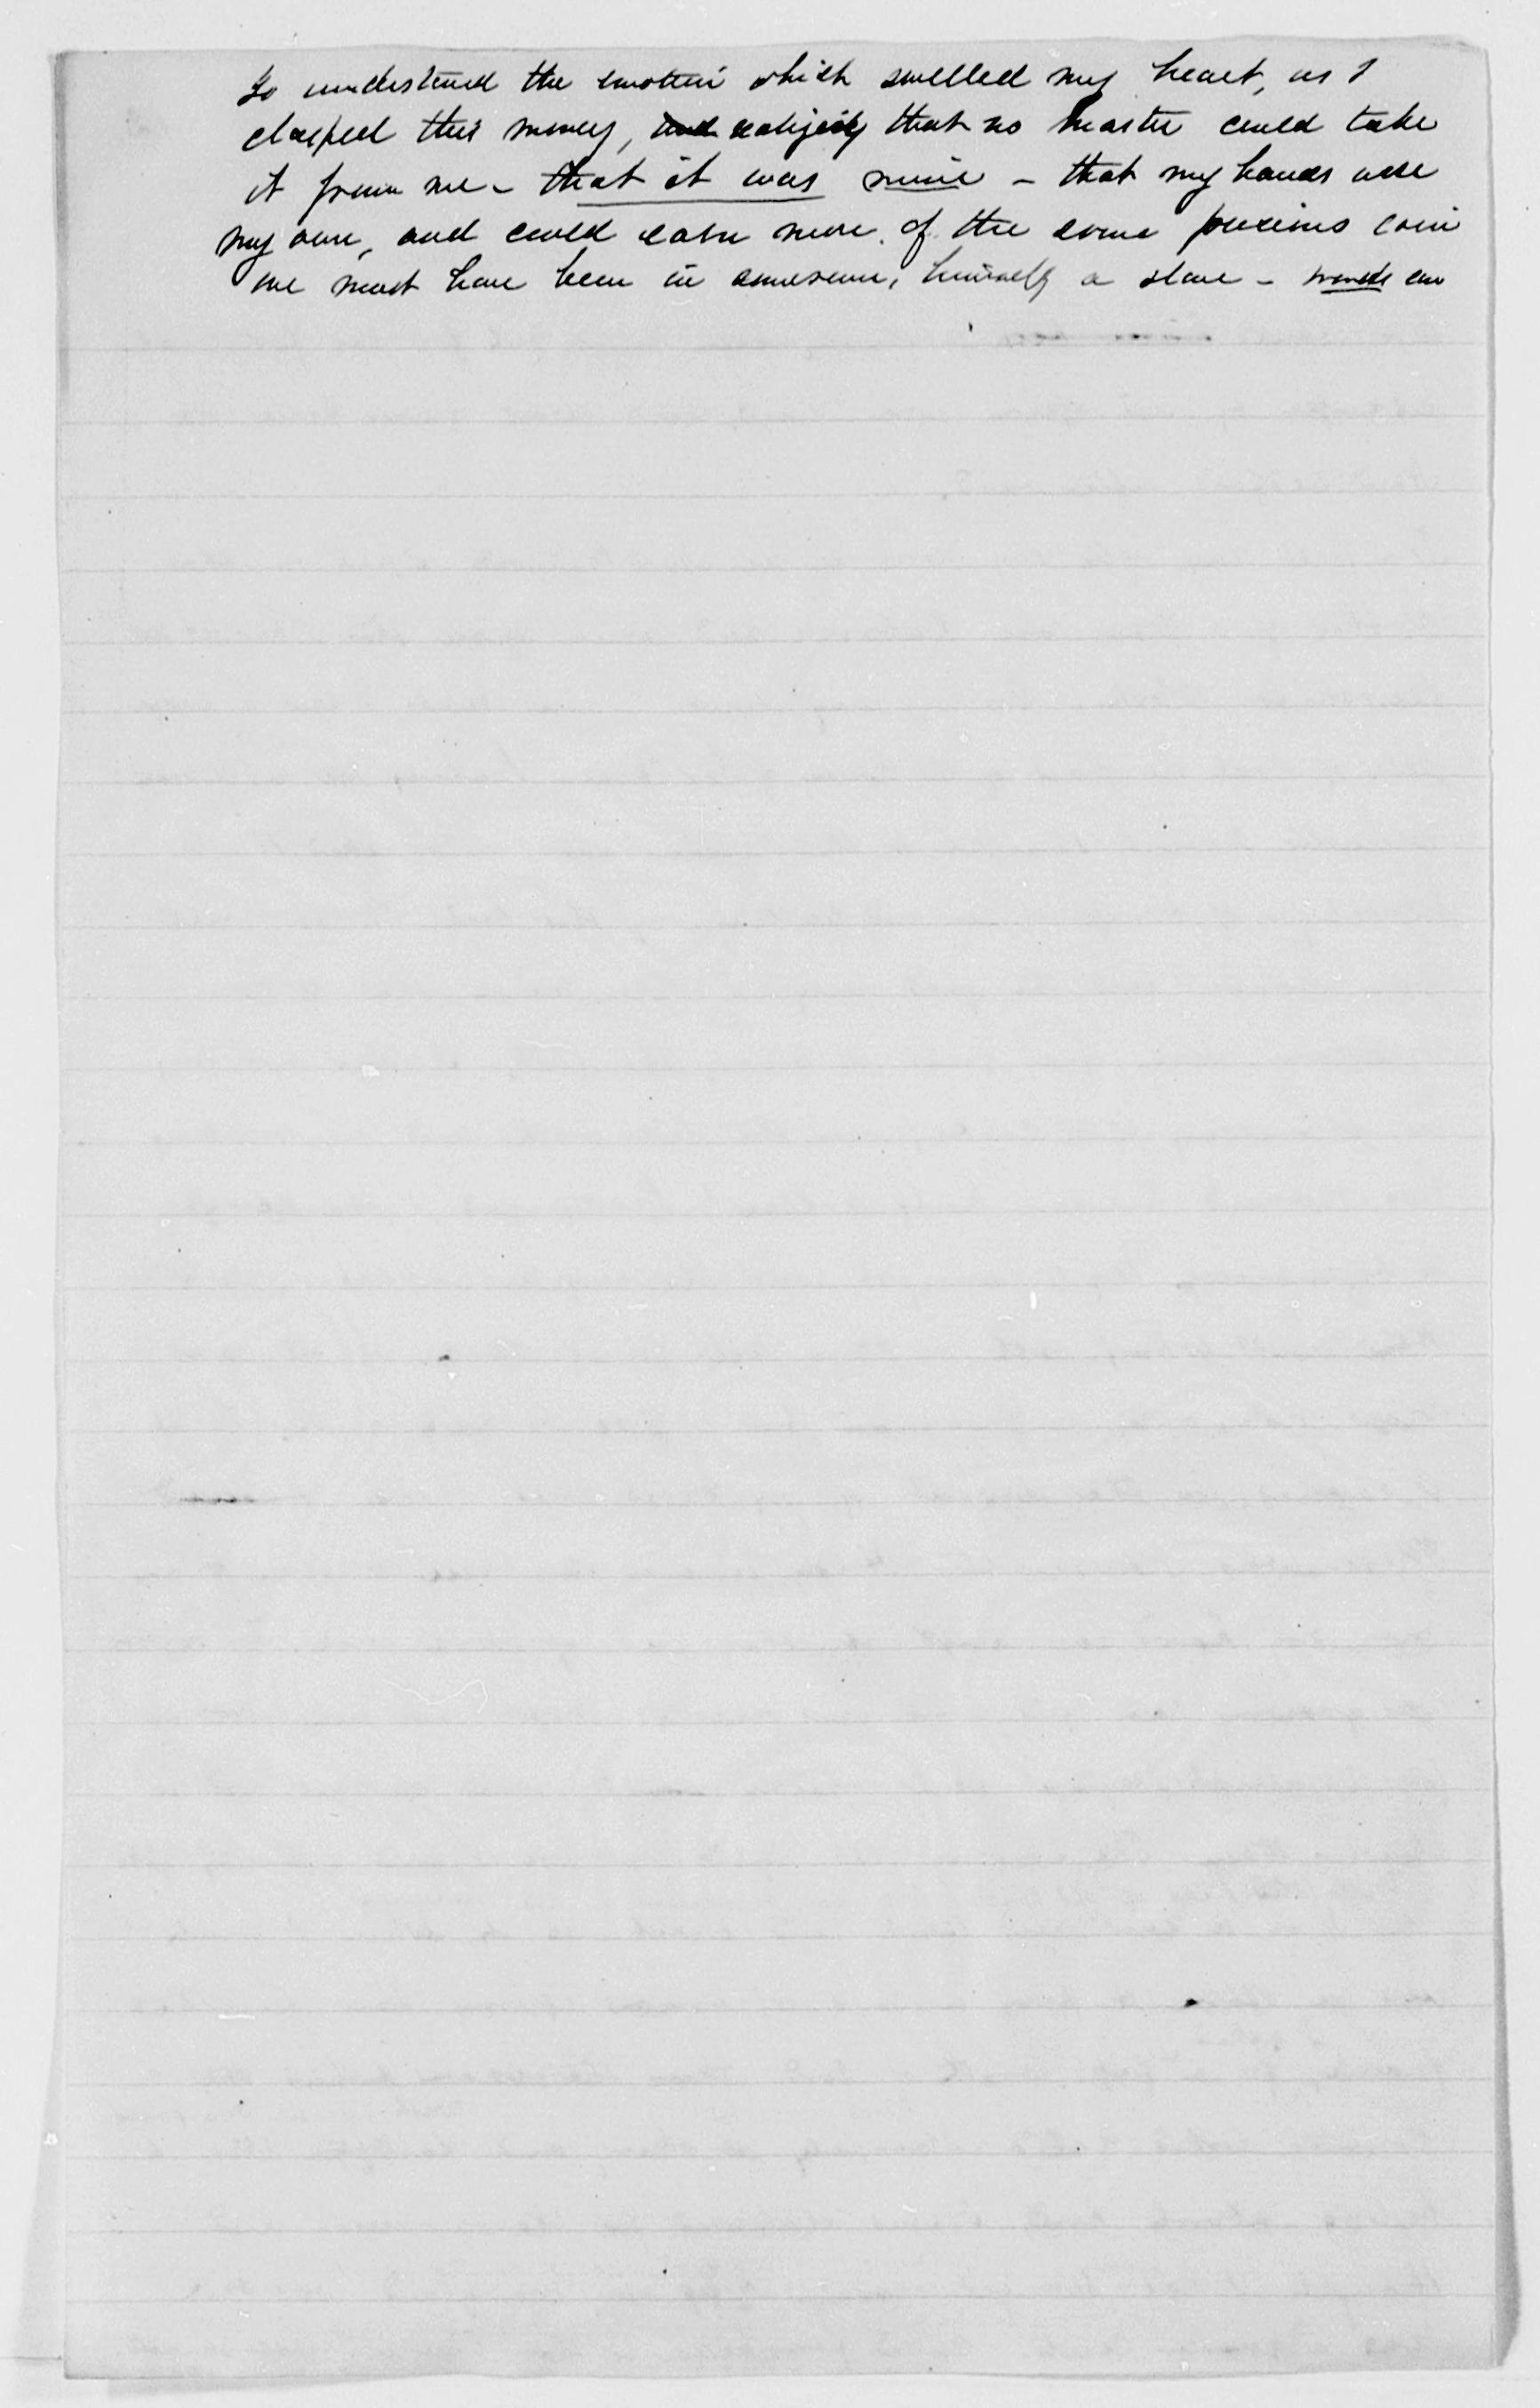 To understand the emotion which swelled my heart, as I
clasped this money, and realizing that no master could take
it from me - that it was mine - that my hands were
my own, and could earn more of the same precious coin
one must have been in some sense, himself a slave -